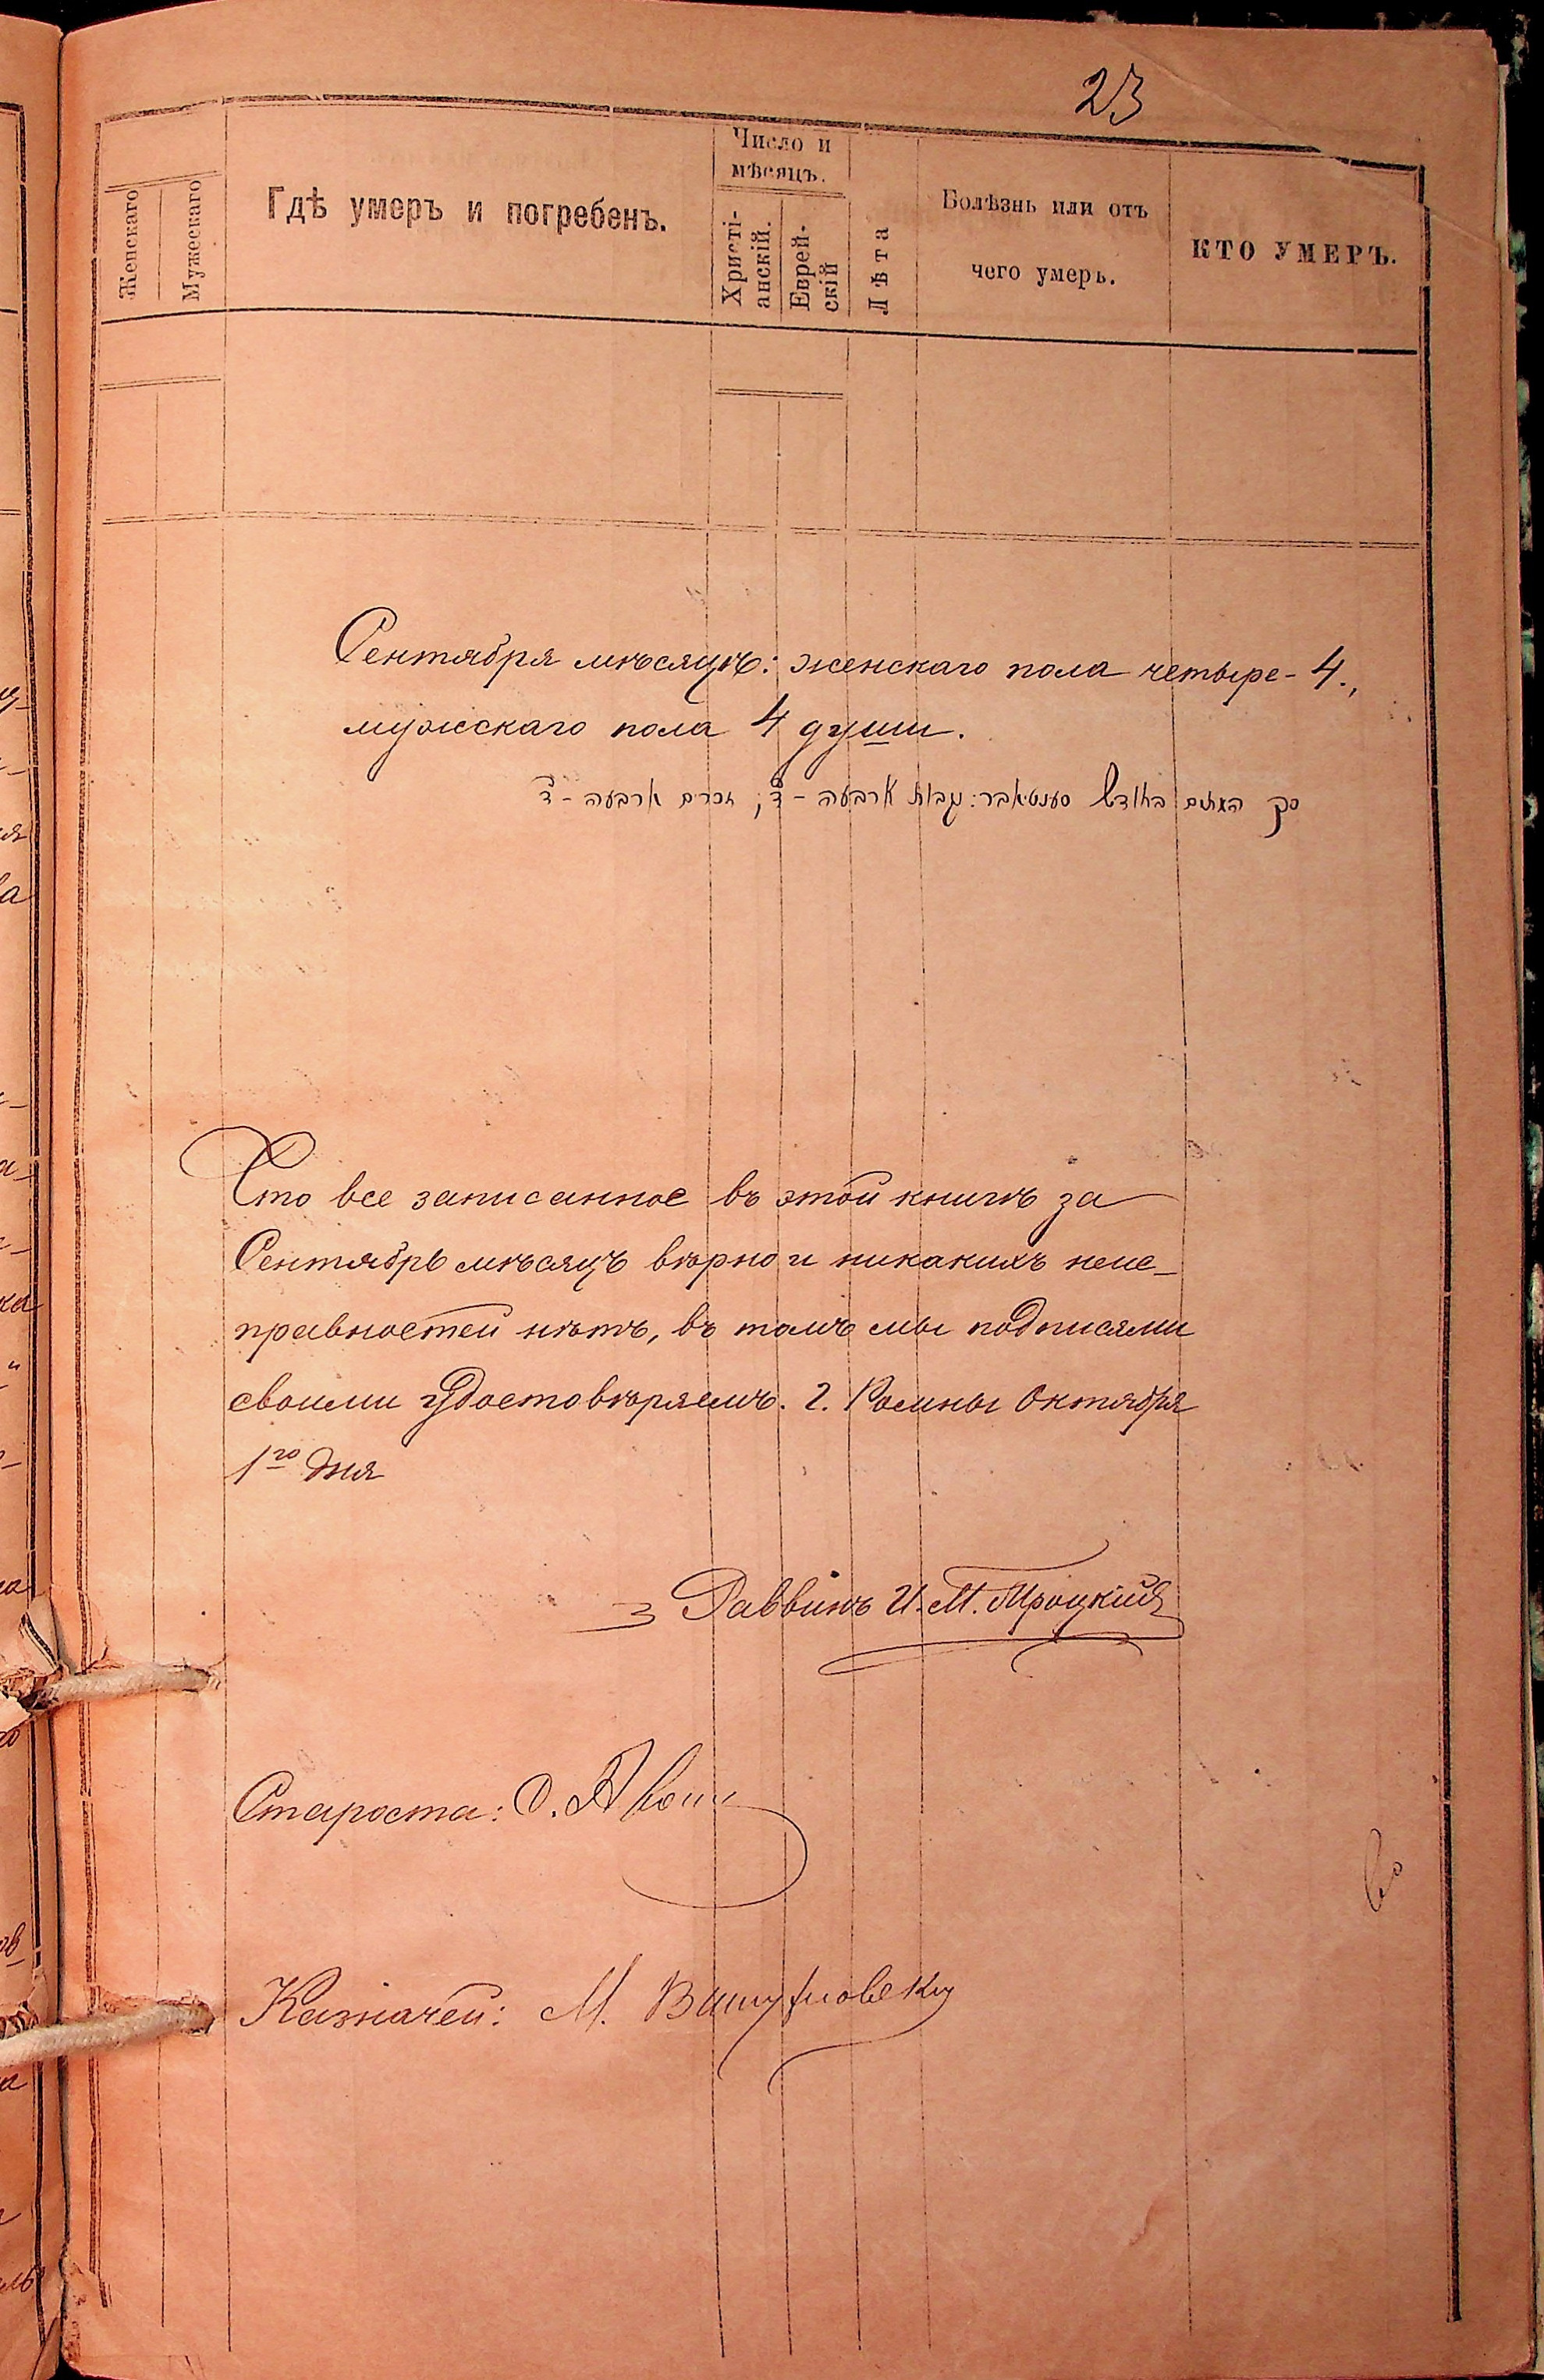 23
Женскаго
Мужескаго
Гдѣ умеръ и погребенъ.
Число и
мѣсяцъ.
Христі-
анскій.
Еврей-
скій
Лѣта
Болѣзнь или отъ
чего умеръ.
КТО УМЕРЪ.
Сентября мѣсяцѣ: женскаго пола четыре - 4.,
мужскаго пола 4 души.
סך המתים בחודש סענטיאבר: נקבות ארבעה - ד'; זכרים ארבעה - ד'
Что все записанное въ этой книгѣ за
Сентябрь мѣсяцъ вѣрно и никакихъ неис-
правностей нѣтъ, въ томъ мы подписями
своими удостовѣряемъ. г. Ромны Октября
1го дня
Раввинъ И. М. Троцкій
Староста: О.
Казначей: М.